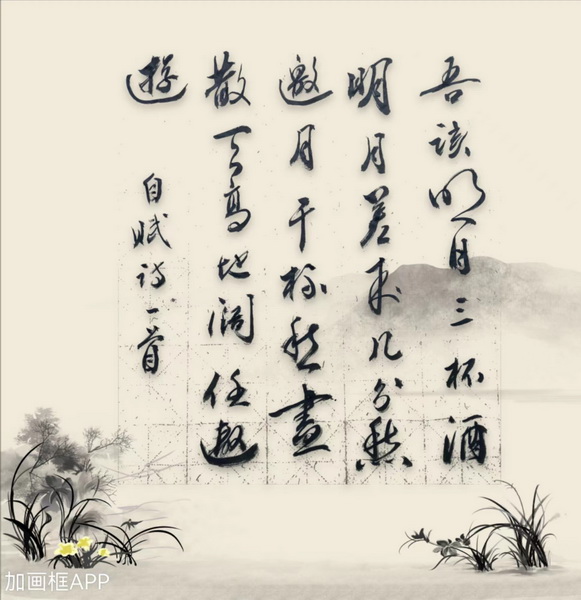 吾该明月三杯酒
明月差来几分愁
邀月干杯愁盡
散天高地阔任遨
遊
自赋诗一首
加画框APP